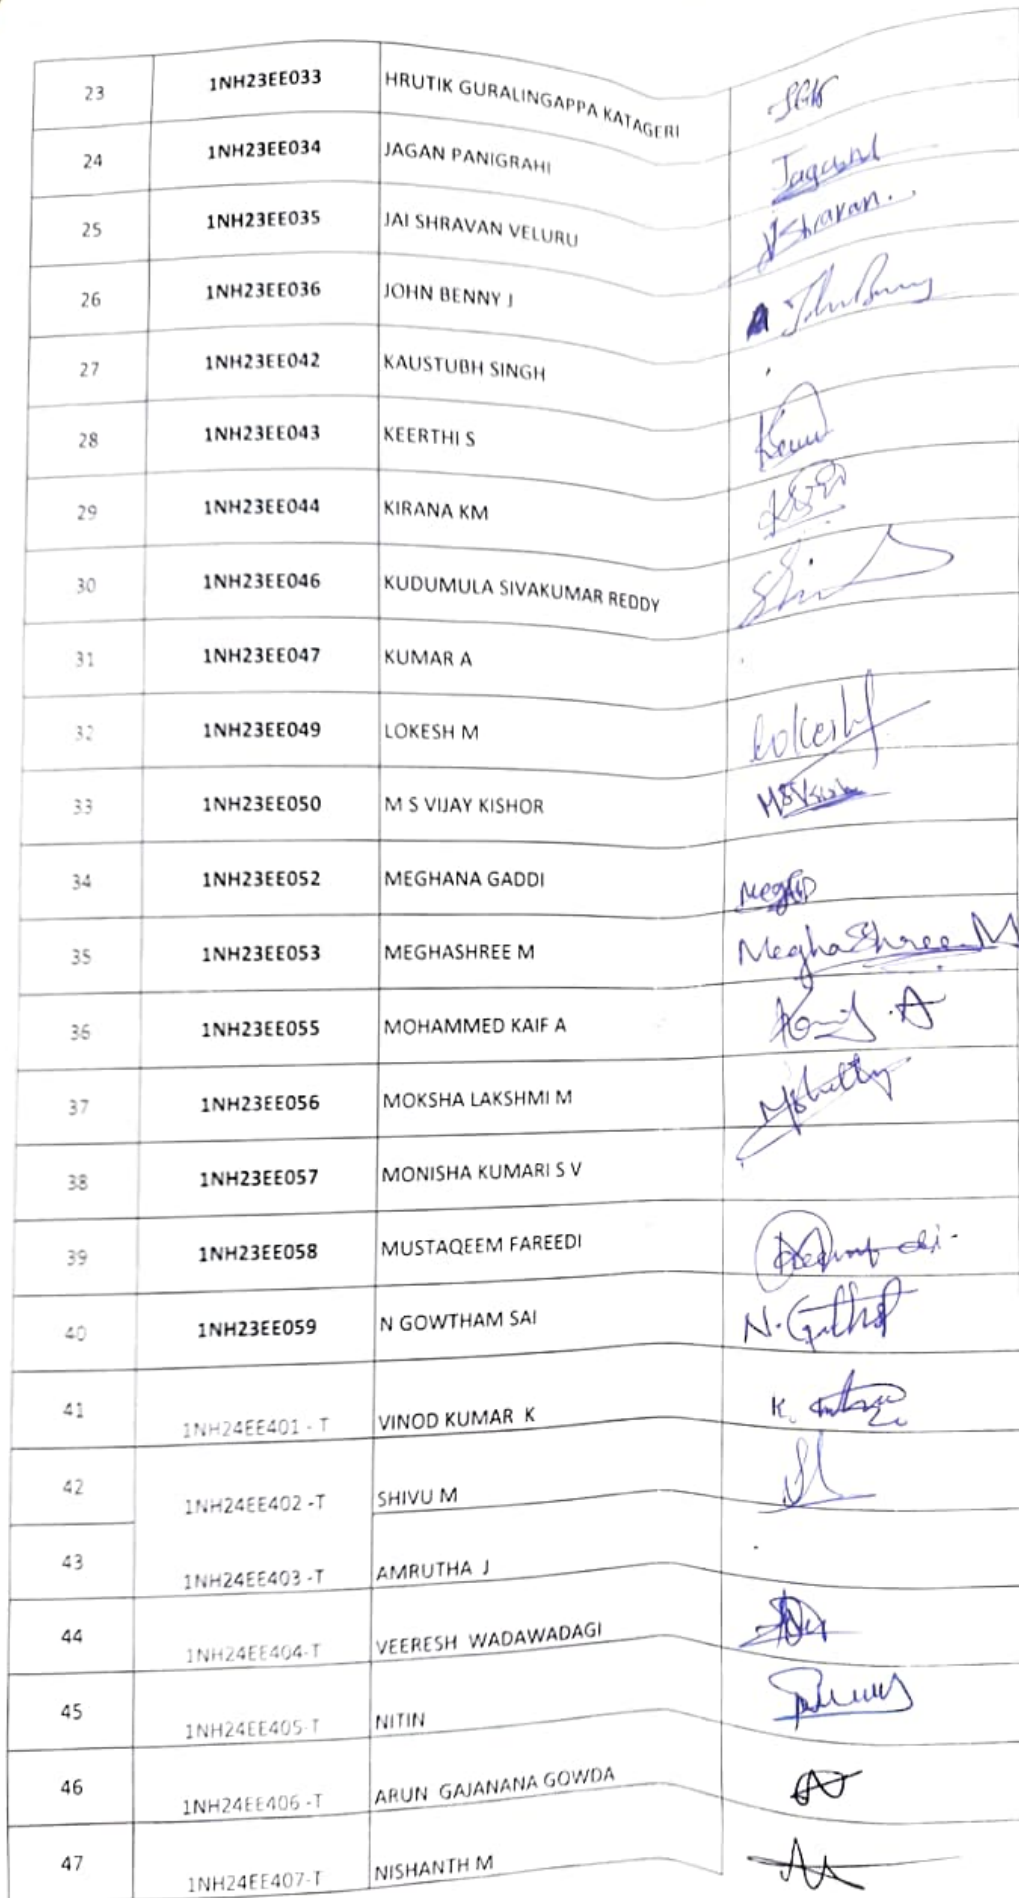 23 1NH23EE033 HRUTIK GURALINGAPPA KATAGERI SGK
24 1NH23EE034 JAGAN PANIGRAHI
25 1NH23EE035 JAI SHRAVAN VELURU Shravan.
26 1NH23EE036 JOHN BENNY J John Benny
27 1NH23EE042 KAUSTUBH SINGH
28 1NH23EE043 KEERTHI S
29 1NH23EE044 KIRANA KM
30 1NH23EE046 KUDUMULA SIVAKUMAR REDDY
31 1NH23EE047 KUMAR A
32 1NH23EE049 LOKESH M Lokesh
33 1NH23EE050 M S VIJAY KISHOR
34 1NH23EE052 MEGHANA GADDI
35 1NH23EE053 MEGHASHREE M MeghaShree M
36 1NH23EE055 MOHAMMED KAIF A
37 1NH23EE056 MOKSHA LAKSHMI M
38 1NH23EE057 MONISHA KUMARI S V
39 1NH23EE058 MUSTAQEEM FAREEDI
40 1NH23EE059 N GOWTHAM SAI
41 1NH24EE401 - T VINOD KUMAR K
42 1NH24EE402 -T SHIVU M
43 1NH24EE403 -T AMRUTHA J
44 1NH24EE404-T VEERESH WADAWADAGI
45 1NH24EE405-T NITIN
46 1NH24EE406 -T ARUN GAJANANA GOWDA
47 1NH24EE407-T NISHANTH M